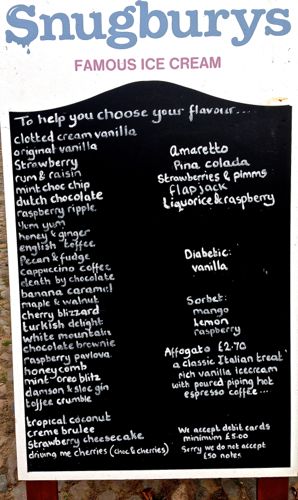 Snugburys
FAMOUS ICE CREAM
To help you choose your flavour....
clotted cream vanilla
original vanilla
Strawberry
rum & raisin
mint choc chip
dutch chocolate
raspberry ripple
Yum yum
honey & ginger
english toffee
Pecan & fudge
cappuccino coffee
death by chocolate
banana caramel
maple & walnut
cherry blizzard
turkish delight
white mountain
chocolate brownie
raspberry pavlova
honeycomb
mint oreo blitz
damson & sloe gin
toffee crumble
tropical coconut
creme brulee
strawberry cheesecake
driving me cherries (choc & cherries)
amaretto
Pina colada
Strawberries & pimms
flapjack
Liquorice & raspberry
Diabetic:
vanilla
Sorbet:
mango
Lemon
raspberry
Affogato £2.70
a classic Italian treat
rich vanilla icecream
with poured piping hot
espresso coffee...
We accept debit cards
minimum £5.00
Sorry we do not accept
£50 notes